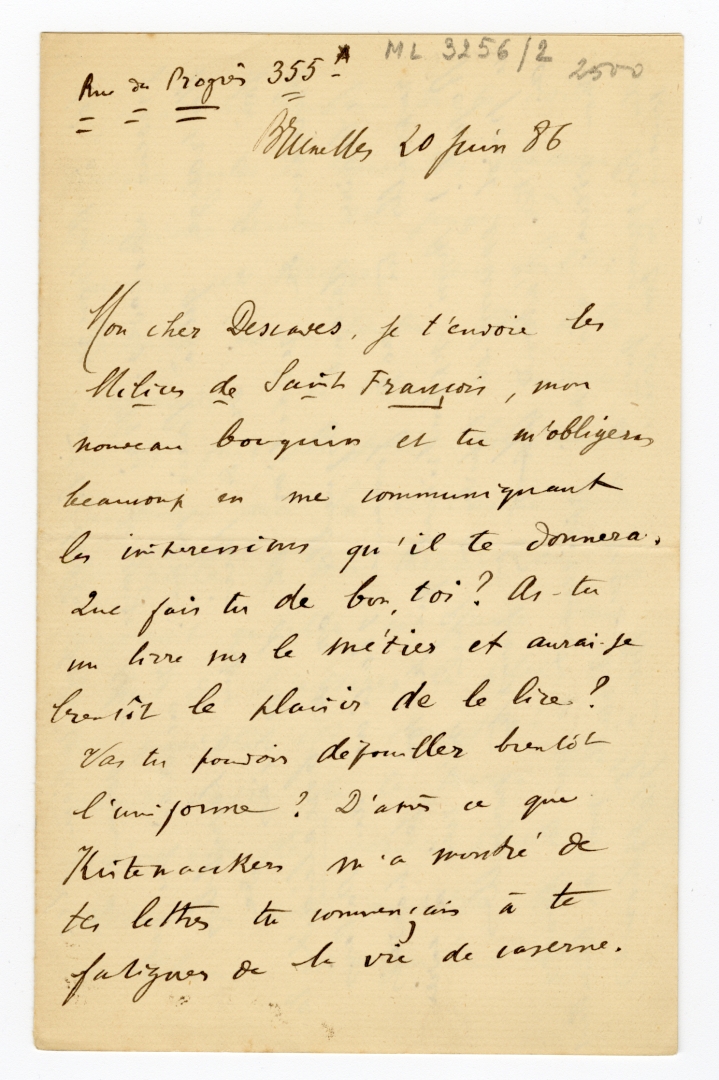 ML 3256/2
2500
Rue du Progrès 355 A
Bruxelles 20 juin 86
Mon cher Descaves, je t'envoie les
Milices de Saint François, mon
nouveau bouquin et tu m'obligeras
beaucoup en me communiquant
les impressions qu'il te donnera.
Que fais tu de bon, toi? As-tu
un livre sur le métier et aurai-je
bientôt le plaisir de le lire?
Vas tu pouvoir dépouiller bientôt
l'uniforme? D'après ce que
Kistemaeckers m'a montré de
tes lettres tu commençais à te
fatiguer de la vie de caserne.